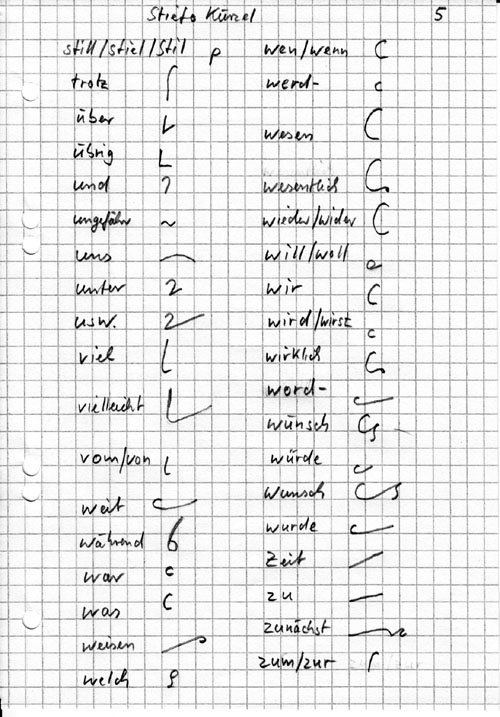 Stiefo Kürzel 5
still/stiel/Stil
trotz
über
übrig
und
ungefähr
uns
unter
usw.
viel
vielleicht
vom/von
weit
während
war
was
weisen
welch
wen/wenn
werd-
wesen
wesentlich
wieder/wider
will/woll
wir
wird/wirst
wirklich
word-
wünsch
würde
wunsch
wurde
Zeit
zu
zunächst
zum/zur